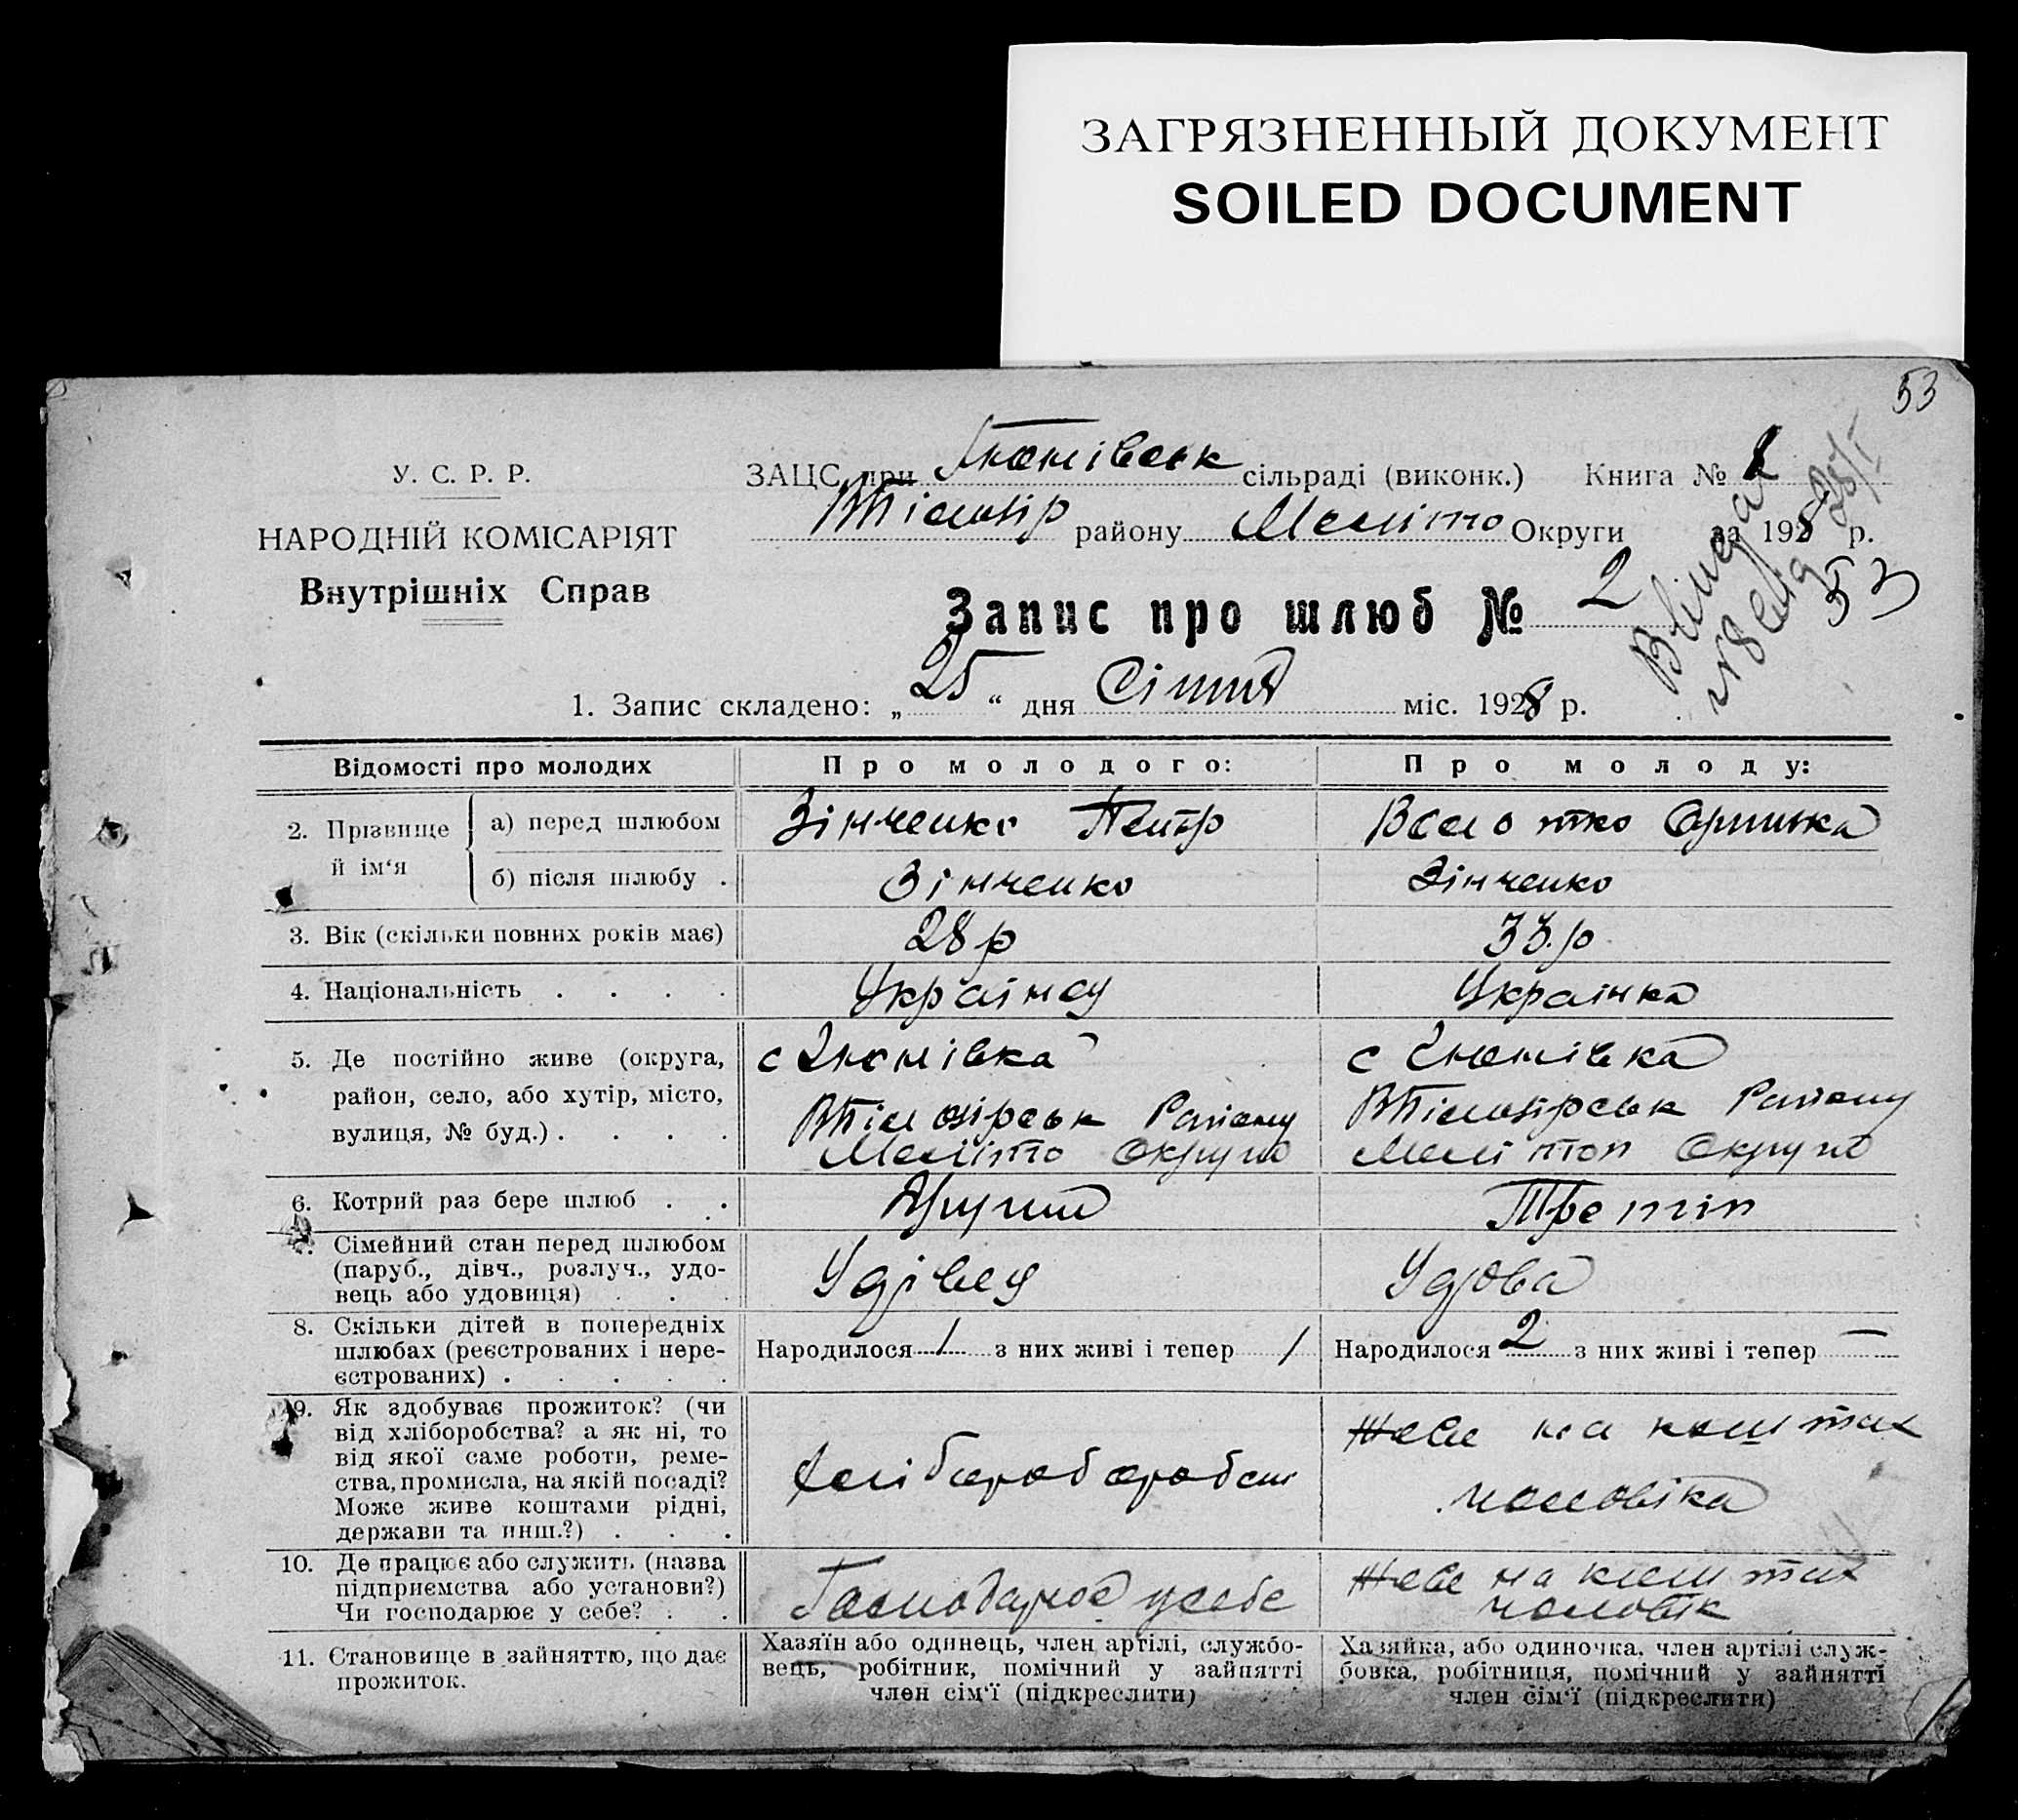 ЗАГРЯЗНЕННЫЙ ДОКУМЕНТ
SOILED DOCUMENT
53
У. С. Р. Р.
НАРОДНІЙ КОМІСАРІЯТ
Внутрішніх Справ
ЗАЦС при сільраді (виконк.) Книга №
району Меліто Округи за 1928 р.
53
Запис про шлюб № 2
1. Запис складено: „ 25 “ дня Січня міс. 1928 р.
Відомості про молодих Про молодого: Про молоду:
2. Прізвище й ім‘я
а) перед шлюбом Зінченко Петр
б) після шлюбу . Зінченко Зінченко
3. Вік (скільки повних років має) 28 р 33 р.
4. Національність . . . . Українец Українка
5. Де постійно живе (округа,
район, село, або хутір, місто,
вулиця, № буд.) . . . .
Меліто Округи Мелітоп Округи
6. Котрий раз бере шлюб . . Другий Третій
7. Сімейний стан перед шлюбом
(паруб., дівч., розлуч., удо-
вець або удовиця) . . .
Удівец Удова
8. Скільки дітей в попередніх
шлюбах (реєстрованих і нере-
єстрованих) . . . . .
Народилося 1 з них живі і тепер 1 Народилося 2 з них живі і тепер —
9. Як здобуває прожиток? (чи
від хліборобства? а як ні, то
від якої саме роботи, реме-
ства, промисла, на якій посаді?
Може живе коштами рідні,
держави та инш.?) . . .
Жеве на коштах
чоловіка
10. Де працює або служить (назва
підприємства або установи?)
Чи господарює у себе? . .
Господарює у себе
Жеве на коштах
чоловік
11. Становище в зайняттю, що дає
прожиток.
Хазяїн або одинець, член артілі, службо-
вець, робітник, помічний у зайнятті
член сім‘ї (підкреслити)
Хазяйка, або одиночка, член артілі служ-
бовка, робітниця, помічний у зайнятті
член сім‘ї (підкреслити)